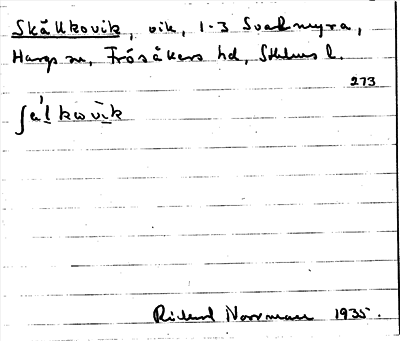 Skålkovik, vik, 1-3 Svalmyra,
Hargs sn, Frösåkers hd, Sthlms l.
273
ʃålkovik
Rickard Norrman 1935.